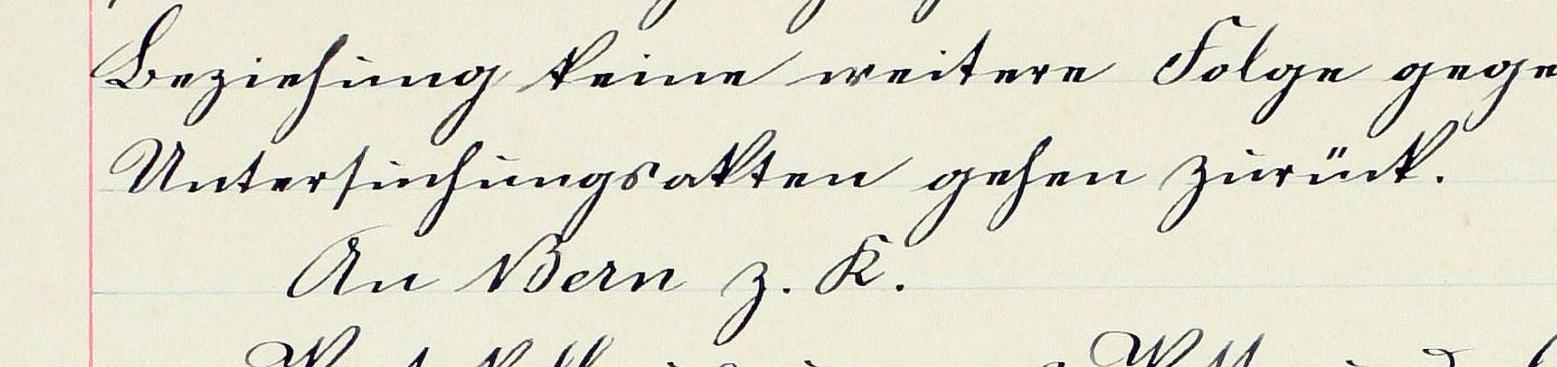 Beziehung keine weitere Folge gege
Untersuchungsakten gehen zurück.
An Bern z. K.